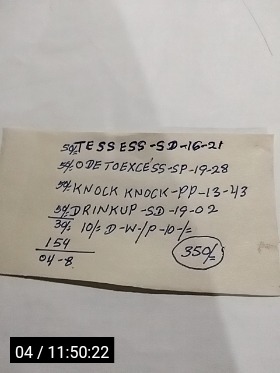 50/- TESSESS-SD-16-21
50/- ODETOEXCÉSS-SP-19-28
50/- KNOCK KNOCK-PP-13-43
50/- DRINKUP-SD-19-02
30/- 10/= D-W-/P-10-/=
154
04-8
350/-
04 / 11:50:22